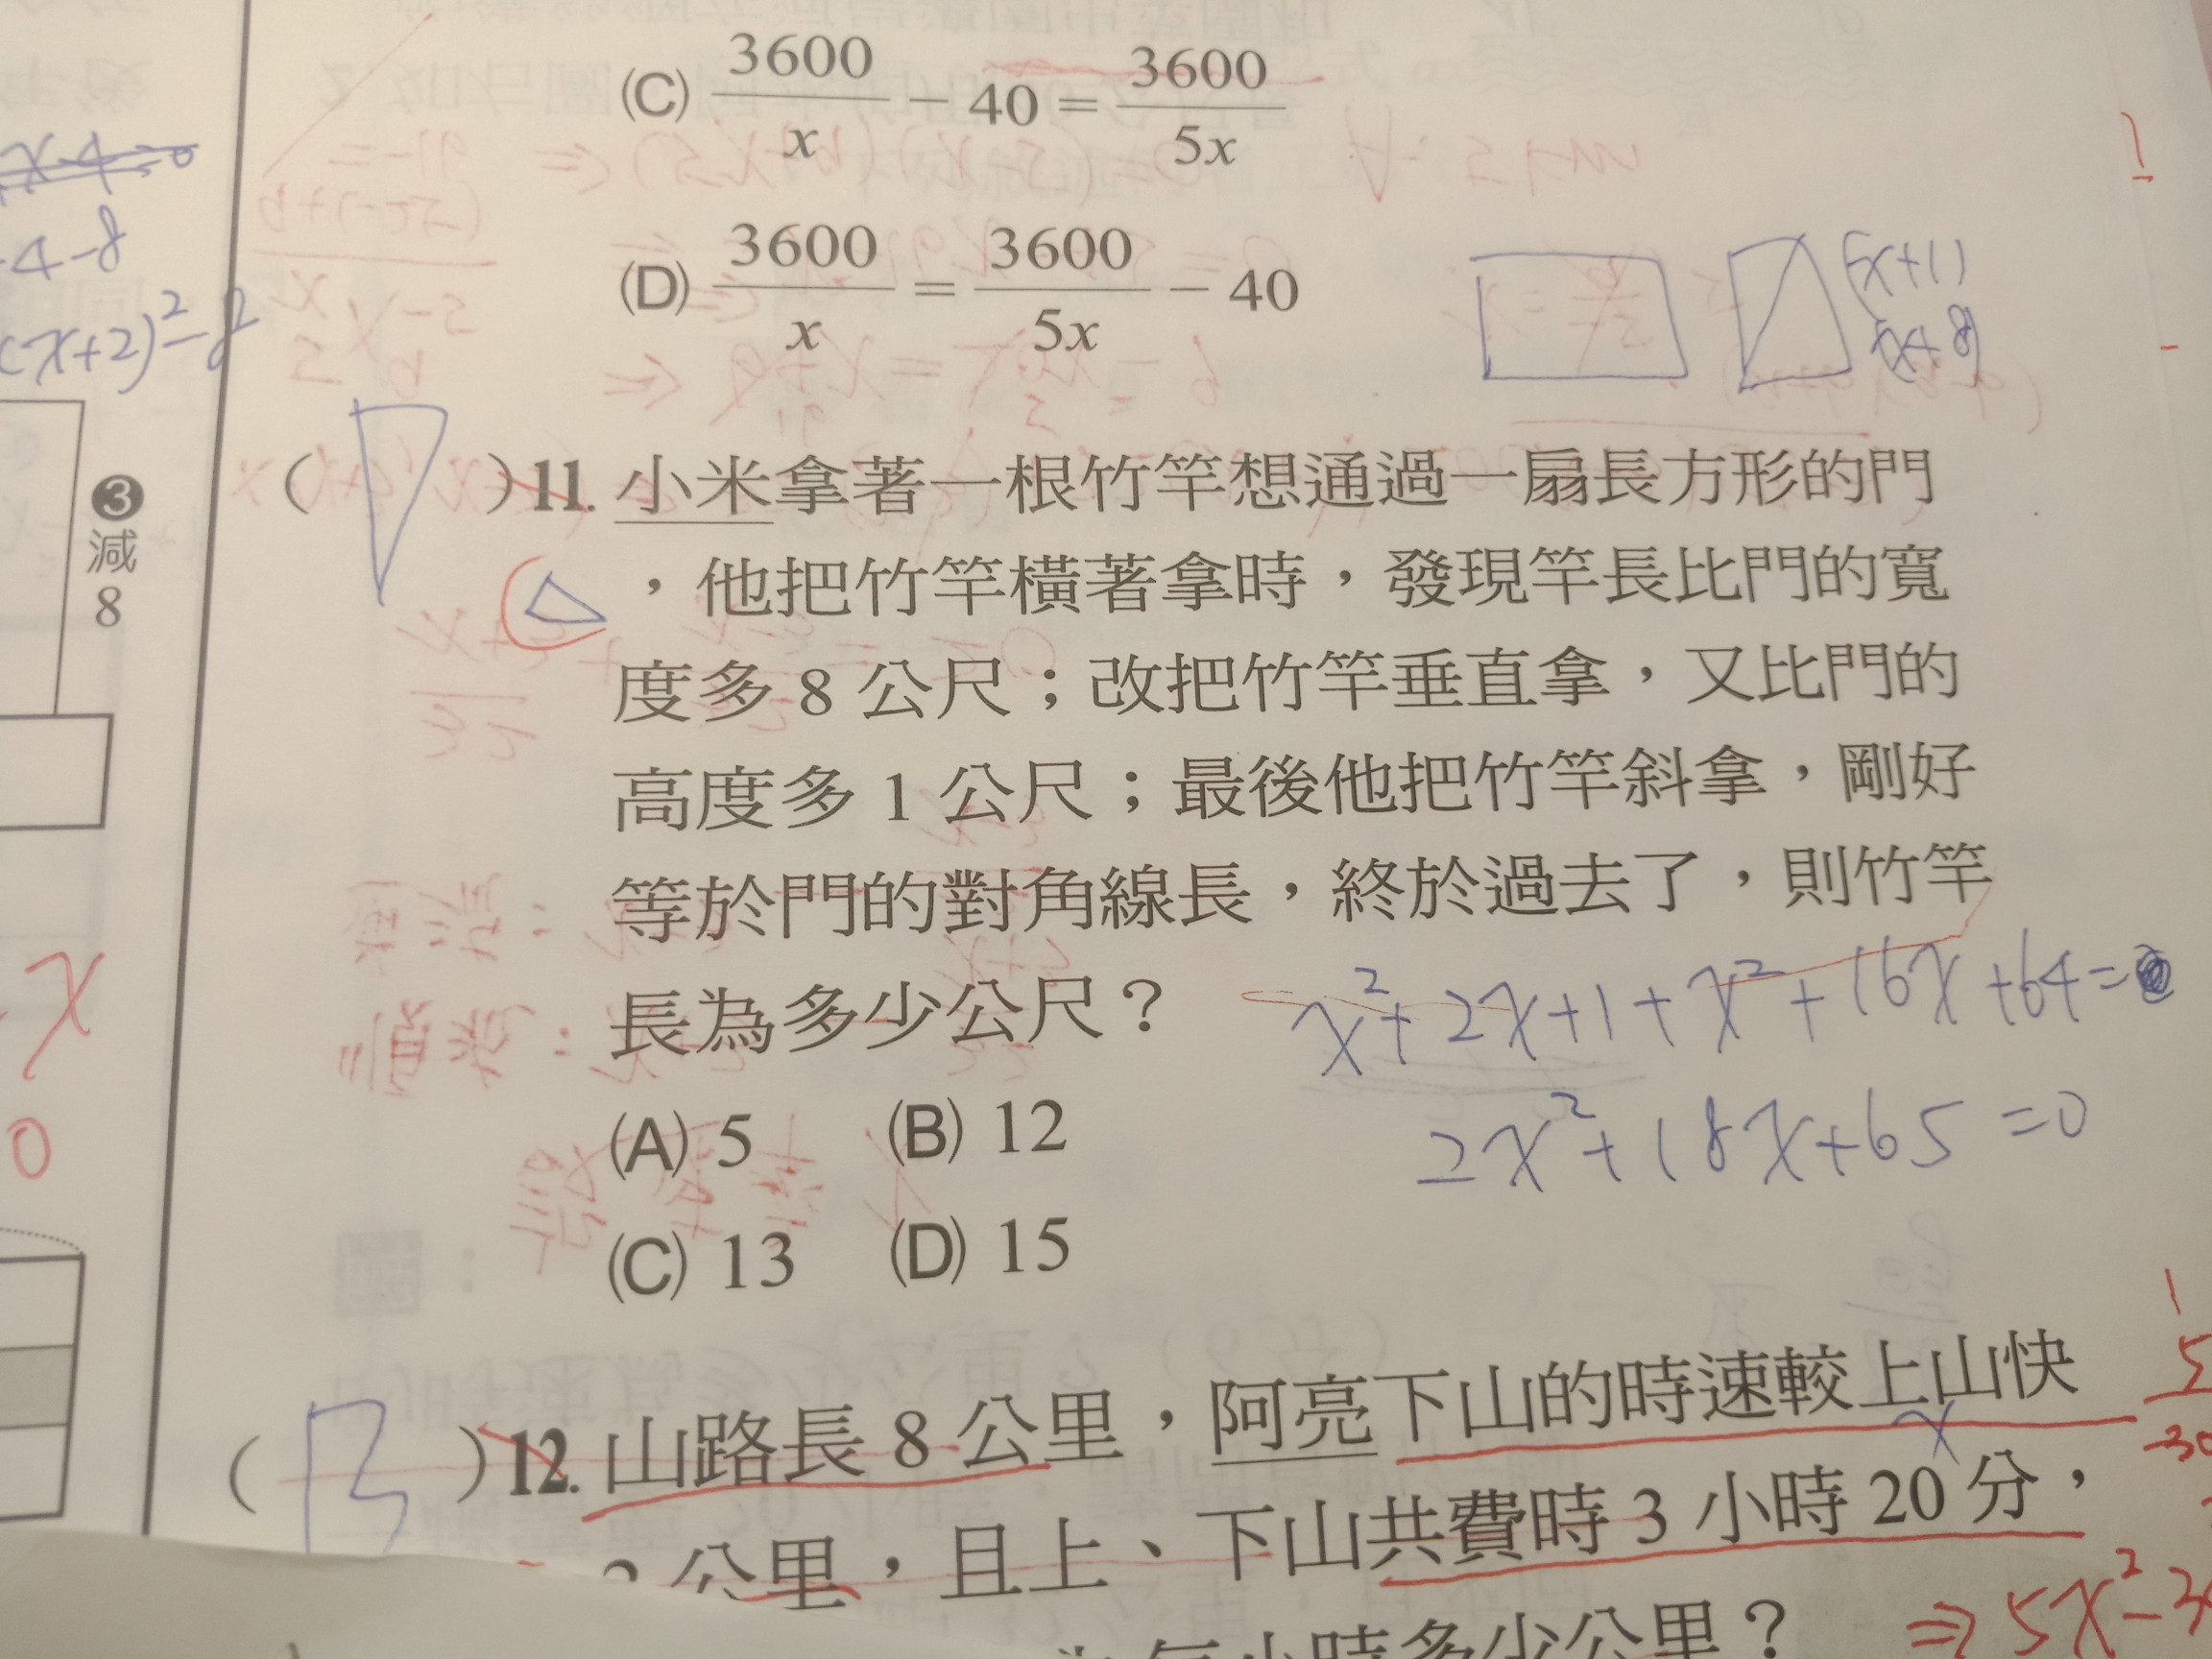 (C) 3600/x － 40 = 3600/5x
(D) 3600/x = 3600/5x － 40
x-4=0
-4-8
(x+2)²-8
(x+1)
(x+8)
❸
減
8
( )11. 小米拿著一根竹竿想通過一扇長方形的門
，他把竹竿橫著拿時，發現竿長比門的寬
度多 8 公尺；改把竹竿垂直拿，又比門的
高度多 1 公尺；最後他把竹竿斜拿，剛好
等於門的對角線長，終於過去了，則竹竿
長為多少公尺？
x²+2x+1+x²+16x+64=
2x²+18x+65=0
(A) 5 (B) 12
(C) 13 (D) 15
x
0
( B )12. 山路長 8 公里，阿亮下山的時速較上山快
x
公里，且上、下山共費時 3 小時 20 分，
每小時多少公里？
⇒ 5x²-3